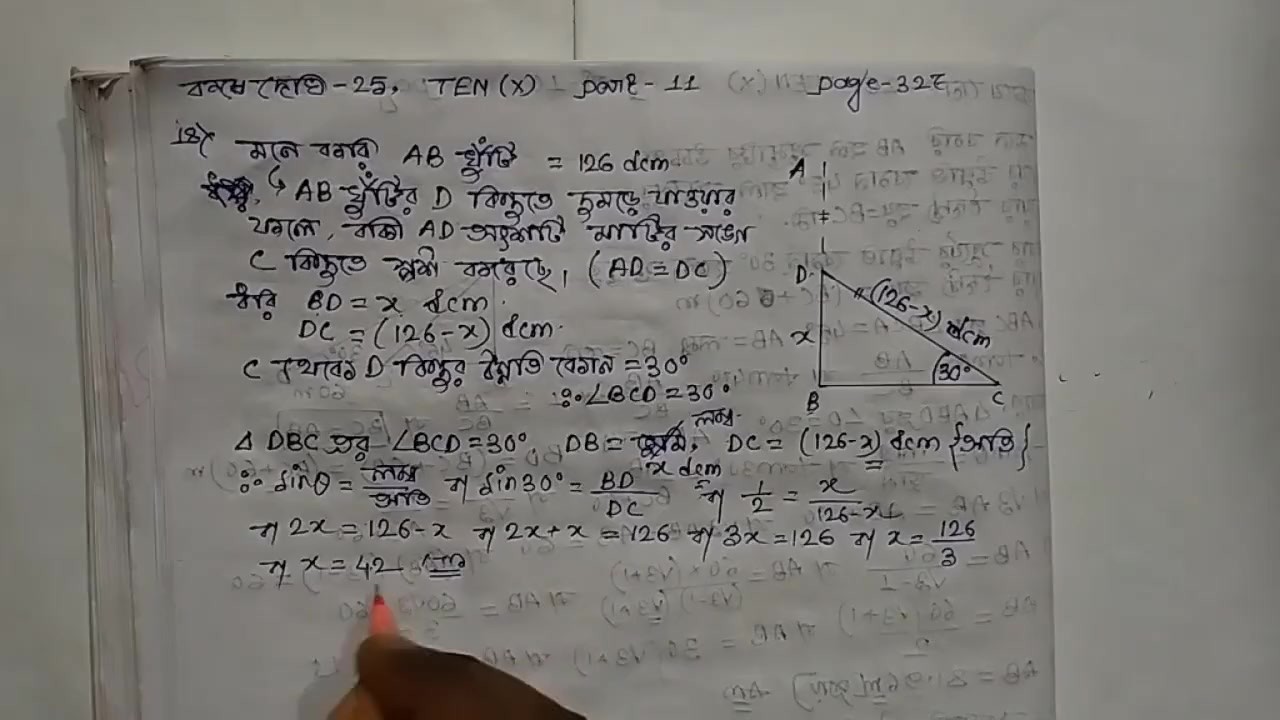 কষে দেখি - 25, TEN (X) part - 11 page - 32
18) মনে করি AB খুঁটি = 126 dcm
↳ AB খুঁটির D বিন্দুতে দুমড়ে যাওয়ার
ফলে, বাকী AD অংশটি মাটির সঙ্গে
C বিন্দুতে স্পর্শ করেছে। (AD = DC)
ধরি BD = x dcm.
DC = (126-x) dcm.
C থেকে D বিন্দুর উন্নতি কোণ = 30°
∴ ∠BCD = 30°
Δ DBC এর ∠BCD = 30°, DB = লম্ব, DC = (126-x) dcm {অতি}
x dcm
∴ sinθ = লম্ব/অতি ⇒ sin30° = BD/DC ⇒ 1/2 = x/126-x
⇒ 2x = 126-x ⇒ 2x+x = 126 ⇒ 3x = 126 ⇒ x = 126/3
⇒ x = 42
A
D
(126-x) dcm
x
30°
B
C